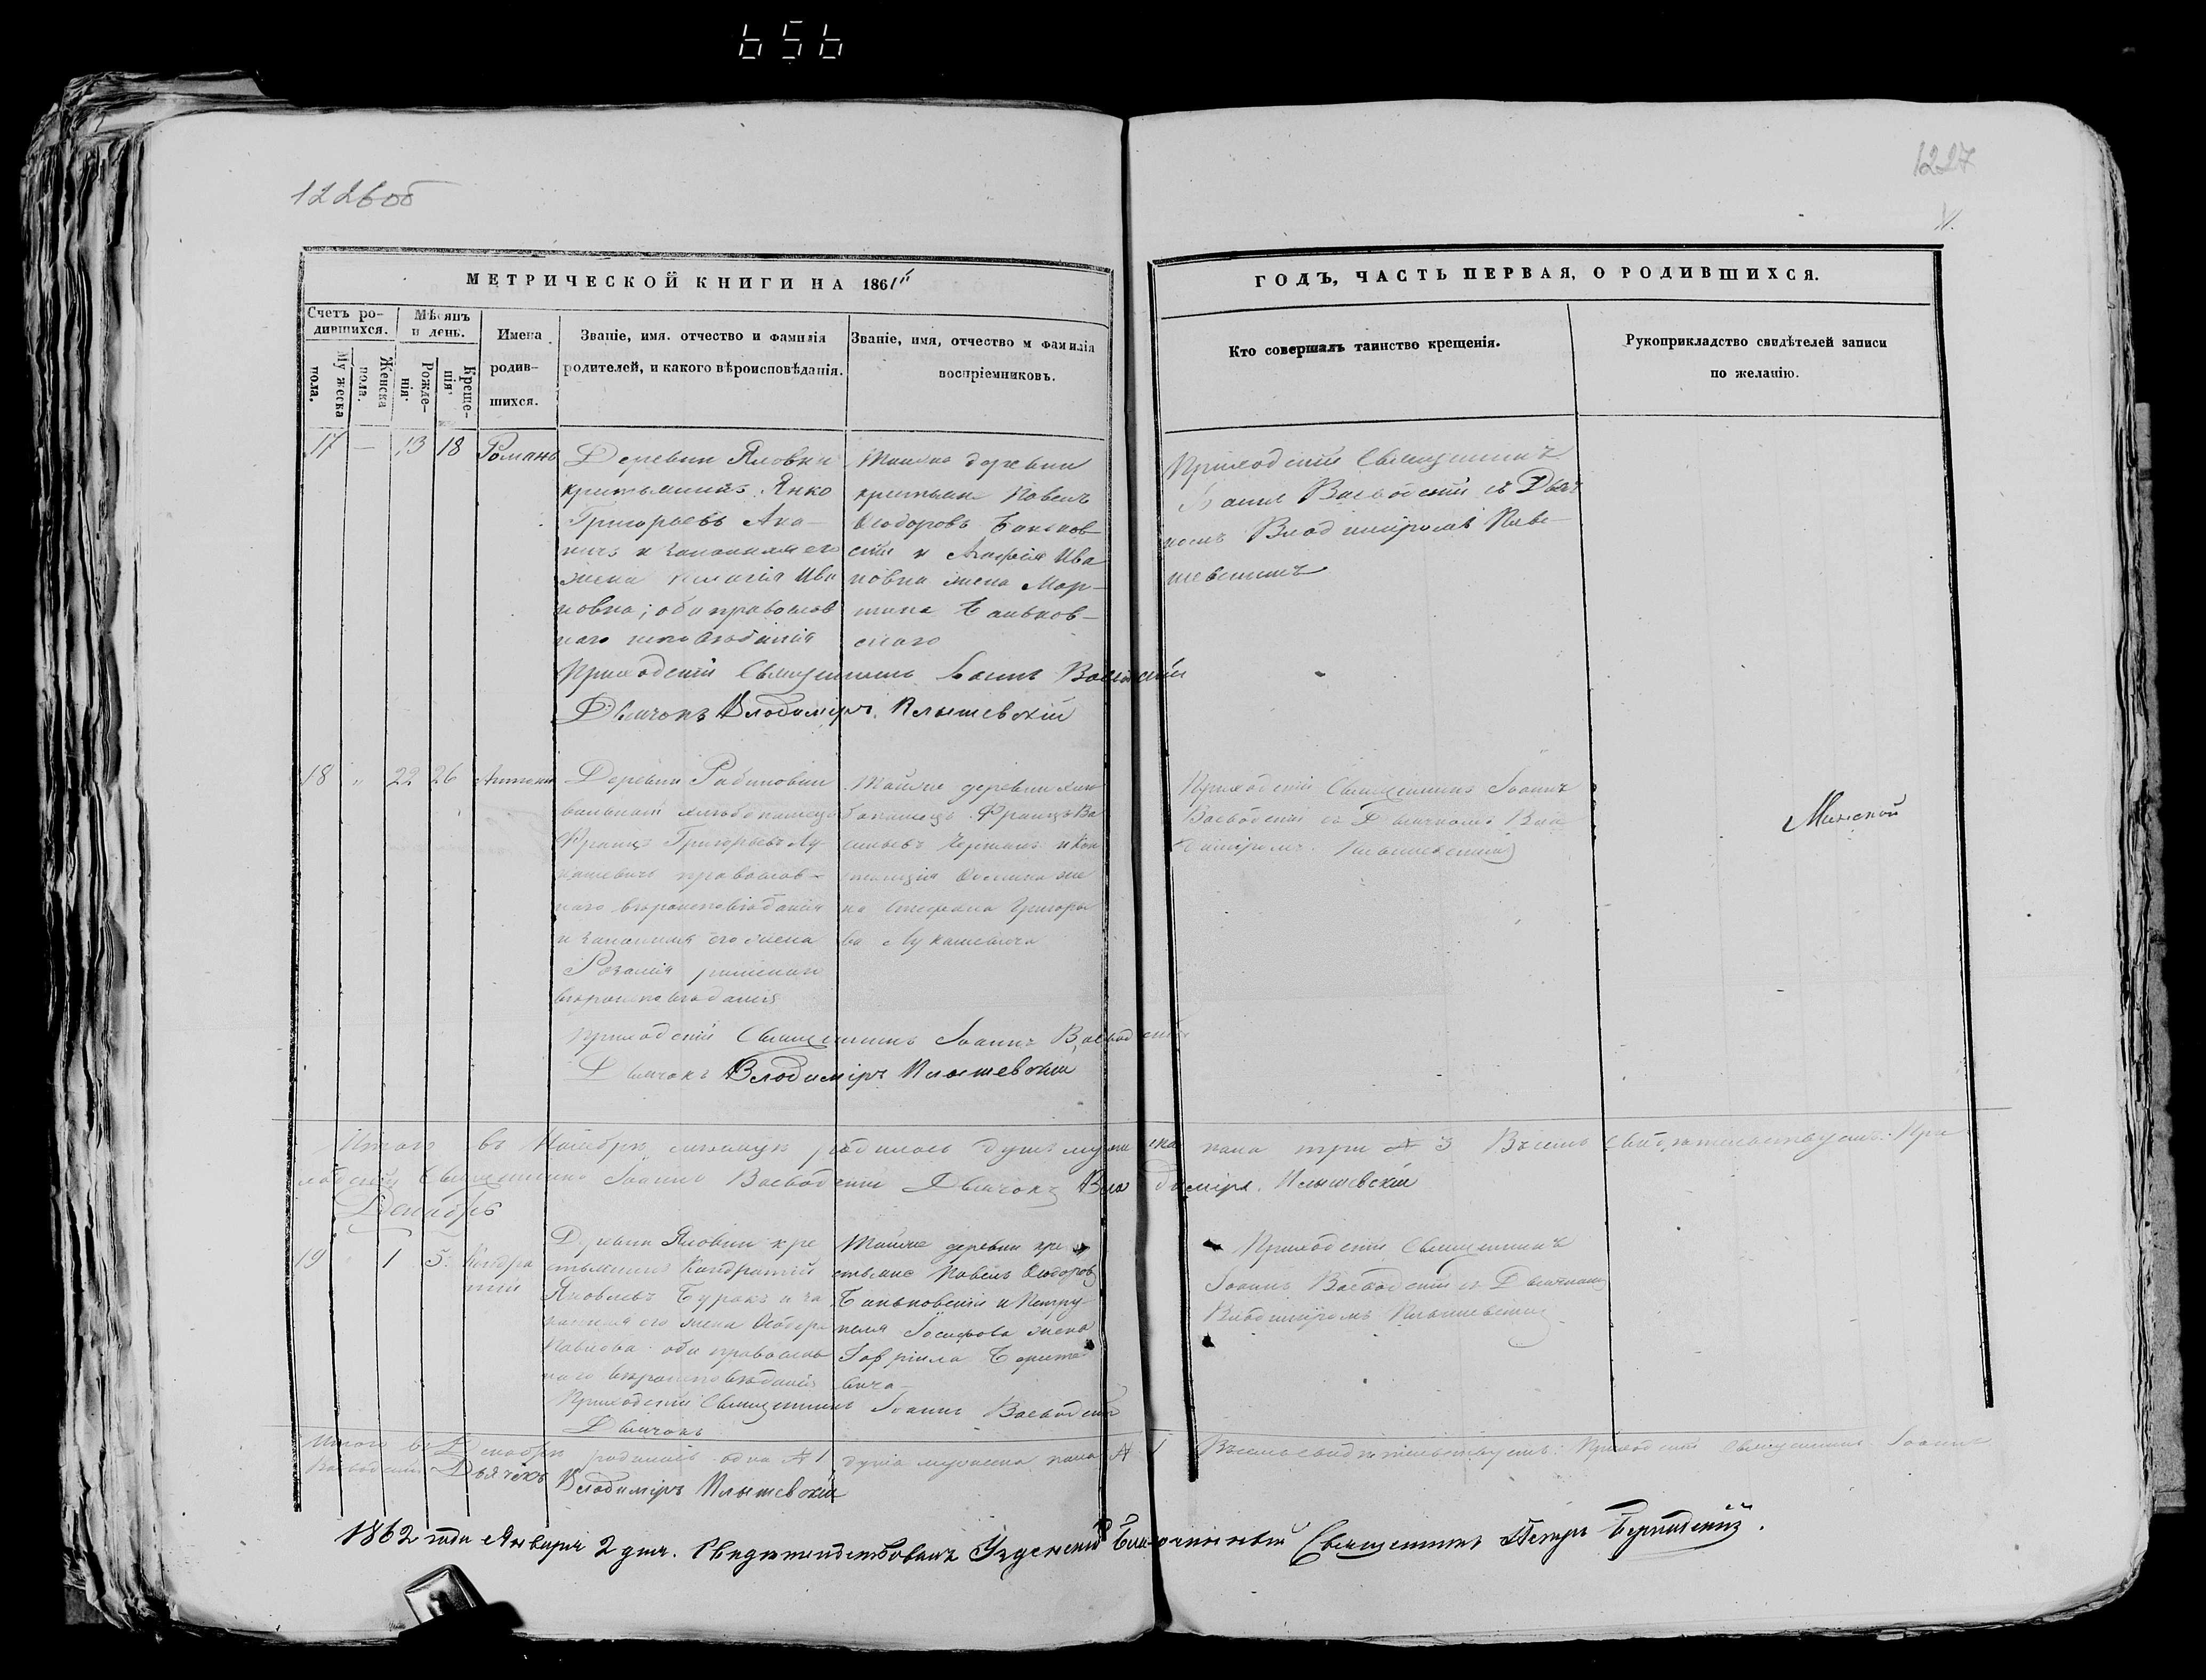 656
1226об
1227
МЕТРИЧЕСКОЙ КНИГИ НА 1861й
ГОДЪ, ЧАСТЬ ПЕРВАЯ, О РОДИВШИХСЯ.
Счетъ ро-
дившихся.
Мѣсяцъ
и день.
Мужеска
пола.
Женска
пола.
Рожде-
нія
Креще-
нія
Имена
родив-
шихся.
Званіе, имя. отчество и фамилія
родителей, и какого вѣроисповѣданія.
Званіе, имя, отчество и фамилія
воспріемниковъ.
Кто совершалъ таинство крещенія.
Рукоприкладство свидѣтелей записи
по желанію.
17 — 13 18 Романъ
Деревни Яловки
крестьянинъ Янко
Григорьевъ
и законная его
жена Ива
новна; оба православ
наго исповѣданія
деревни
крестьяне Павелъ
Ѳеодоровъ Баньков-
скій и Агафія Ива
новна жена Мар-
тина Баньков-
скаго
Приходскій Священникъ
Іоаннъ Воеводскій съ Дьяч
комъ Владиміромъ
Приходскій Священникъ Іоаннъ Воеводскій
Дьячокъ Владиміръ Плышевскій
18 " 22 26 Антоній
Деревни
вольный хлѣбопашецъ
Францъ Григорьевъ Лу
кашевичъ православ-
наго вѣроисповѣданія
и законная его жена
Розалія римскаго
вѣроисповѣданія
Тойже деревни хлѣ
бопашецъ Францъ Ва
сильевъ и Кон
станція же
на Стефана Григорье
ва Лукашевича
Приходскій Священникъ Іоаннъ
Воеводскій съ Дьячкомъ Вла
диміромъ Плышевскимъ
Приходскій Священникъ Іоаннъ Воеводскій
Дьячокъ Владиміръ Плышевскій
Итого въ Ноябрѣ мѣсяцѣ родилось душъ мужеска пола три № 3 Въ семъ свидѣтельствуемъ: При
ходскій Священникъ Іоаннъ Воеводскій Дьячокъ Владиміръ Плышевскій
Декабрь
19 1 5 Кондра
тій
Деревни Яловки кре
стьянинъ Кондратій
Яковлевъ Буракъ и за
конная его жена
Павлова оба православ
наго вѣроисповѣданія
Тойже деревни кре
стьяне Павелъ Ѳеодоровъ
Баньковскій и Петру
неля Іосифова жена
Гавріила
вича
Приходскій Священникъ
Іоаннъ Воеводскій съ Дьячкомъ
Владиміромъ Плышевскимъ
Приходскій Священникъ Іоаннъ Воеводскій
Дьячокъ
Итого въ Декабрѣ родилась одна № 1 душа мужеска пола № 1 Въ семъ свидѣтельствуемъ: Приходскій Священникъ Іоаннъ
Воеводскій Дьячекъ Владиміръ Плышевскій
1862 года Января 2 дня. Узденскій Благочинный Священникъ Петръ